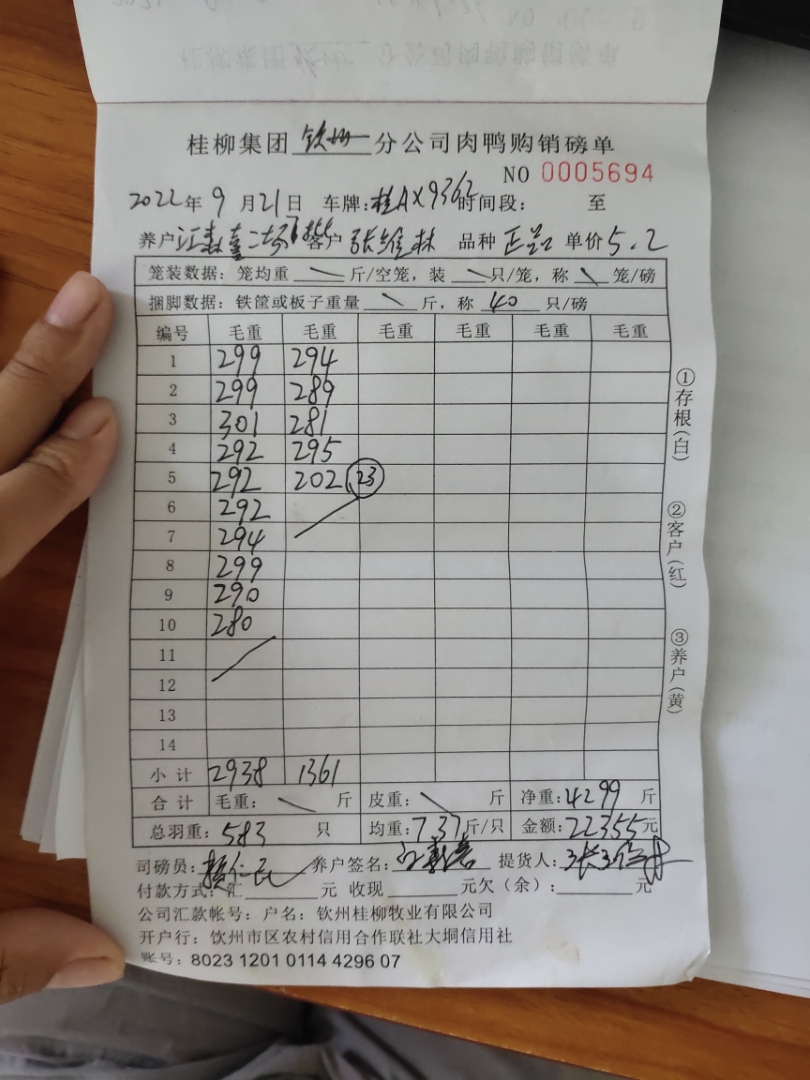 桂柳集团 钦州 分公司肉鸭购销磅单
NO 0005694
2022年 9 月 21 日 车牌:桂AX9363 时间段: 至
养户 江 二 客户 张维林 品种 正品 单价 5.2
笼装数据: 笼均重 斤/空笼, 装 只/笼, 称 笼/磅
捆脚数据: 铁筐或板子重量 斤, 称 40 只/磅
编号 毛重 毛重 毛重 毛重 毛重 毛重
1 299 294
2 299 289
3 301 281
4 292 295
5 292 202 23
6 292
7 294
8 299
9 290
10 280
11
12
13
14
小 计 2938 1361
合 计 毛重: 斤 皮重: 斤 净重:4299 斤
总羽重:583 只 均重:7.37斤/只 金额:22355元
司磅员: 养户签名: 提货人:
付款方式: 汇 元 收现 元欠(余): 元
公司汇款帐号: 户名: 钦州桂柳牧业有限公司
开户行: 钦州市区农村信用合作联社大垌信用社
账号: 8023 1201 0114 4296 07
①存根(白)
②客户(红)
③养户(黄)